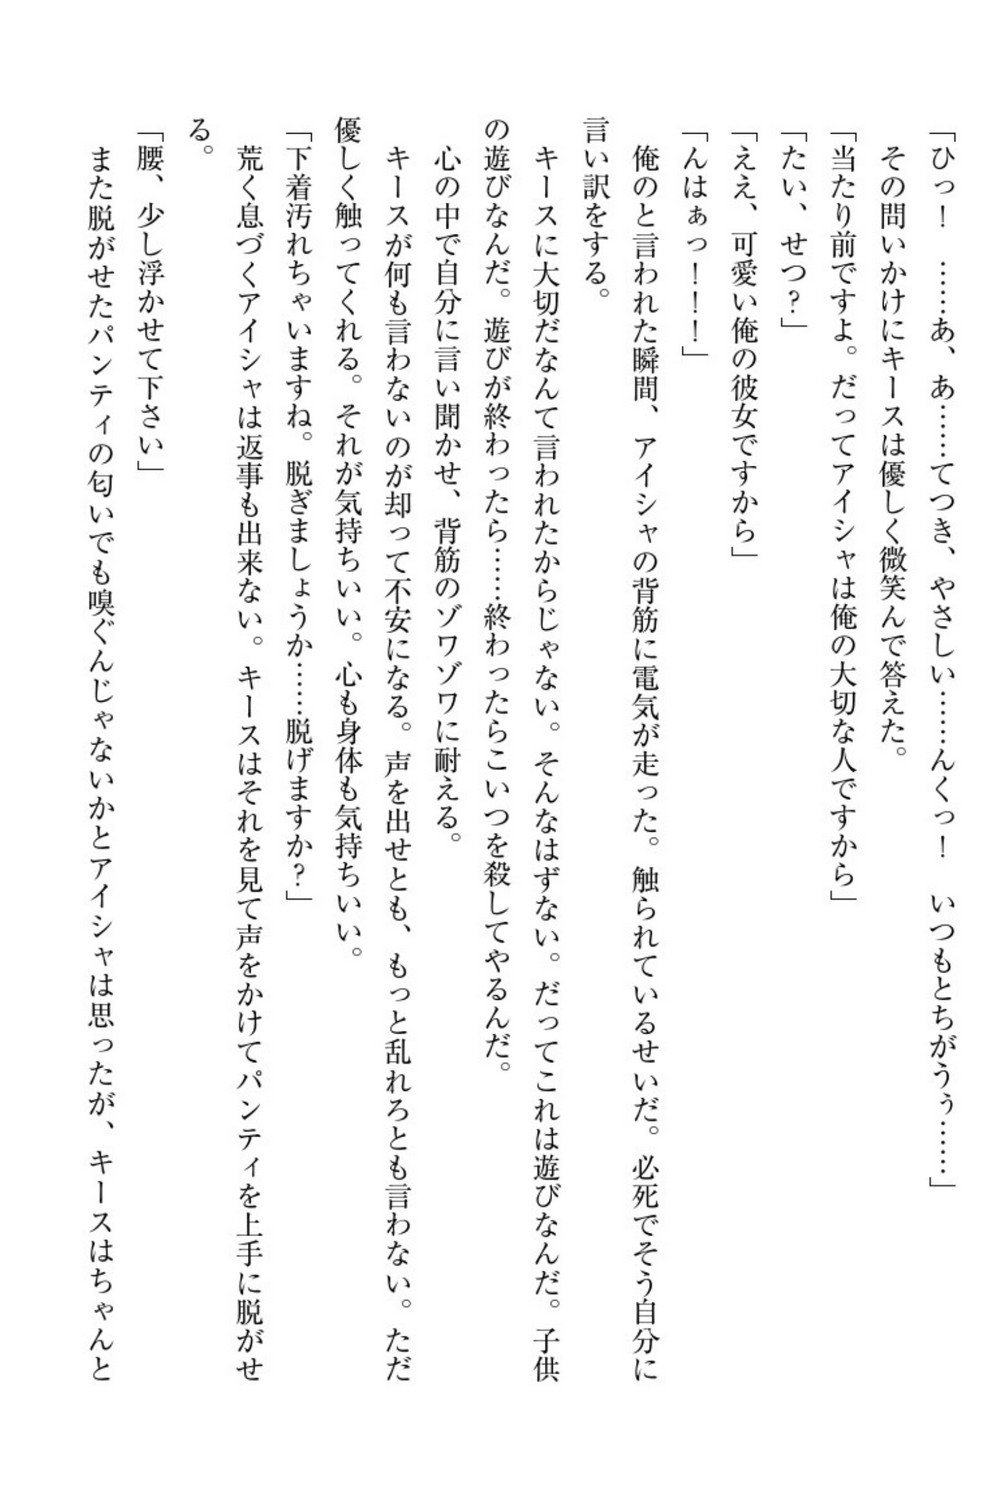 「ひっ！　……あ、あ……てつき、やさしい……んくっ！　いつもとちがうぅ……」
その問いかけにキースは優しく微笑んで答えた。
「当たり前ですよ。だってアイシャは俺の大切な人ですから」
「たい、せつ？」
「ええ、可愛い俺の彼女ですから」
「んはぁっ！！！」
俺のと言われた瞬間、アイシャの背筋に電気が走った。触られているせいだ。必死でそう自分に
言い訳をする。
キースに大切だなんて言われたからじゃない。そんなはずない。だってこれは遊びなんだ。子供
の遊びなんだ。遊びが終わったら……終わったらこいつを殺してやるんだ。
心の中で自分に言い聞かせ、背筋のゾワゾワに耐える。
キースが何も言わないのが却って不安になる。声を出せとも、もっと乱れろとも言わない。ただ
優しく触ってくれる。それが気持ちいい。心も身体も気持ちいい。
「下着汚れちゃいますね。脱ぎましょうか……脱げますか？」
荒く息づくアイシャは返事も出来ない。キースはそれを見て声をかけてパンティを上手に脱がせ
る。
「腰、少し浮かせて下さい」
また脱がせたパンティの匂いでも嗅ぐんじゃないかとアイシャは思ったが、キースはちゃんと